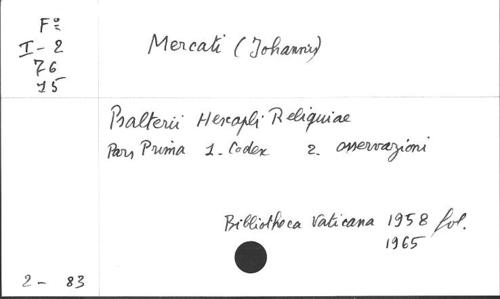 Fº
I-2
76
15
Mercati (Johannis)
Psalterii Hexapli Reliquiae
Pars Prima 1. Codex 2. osservazioni
Bibliotheca Vaticana 1958 fol.
1965
2- 83